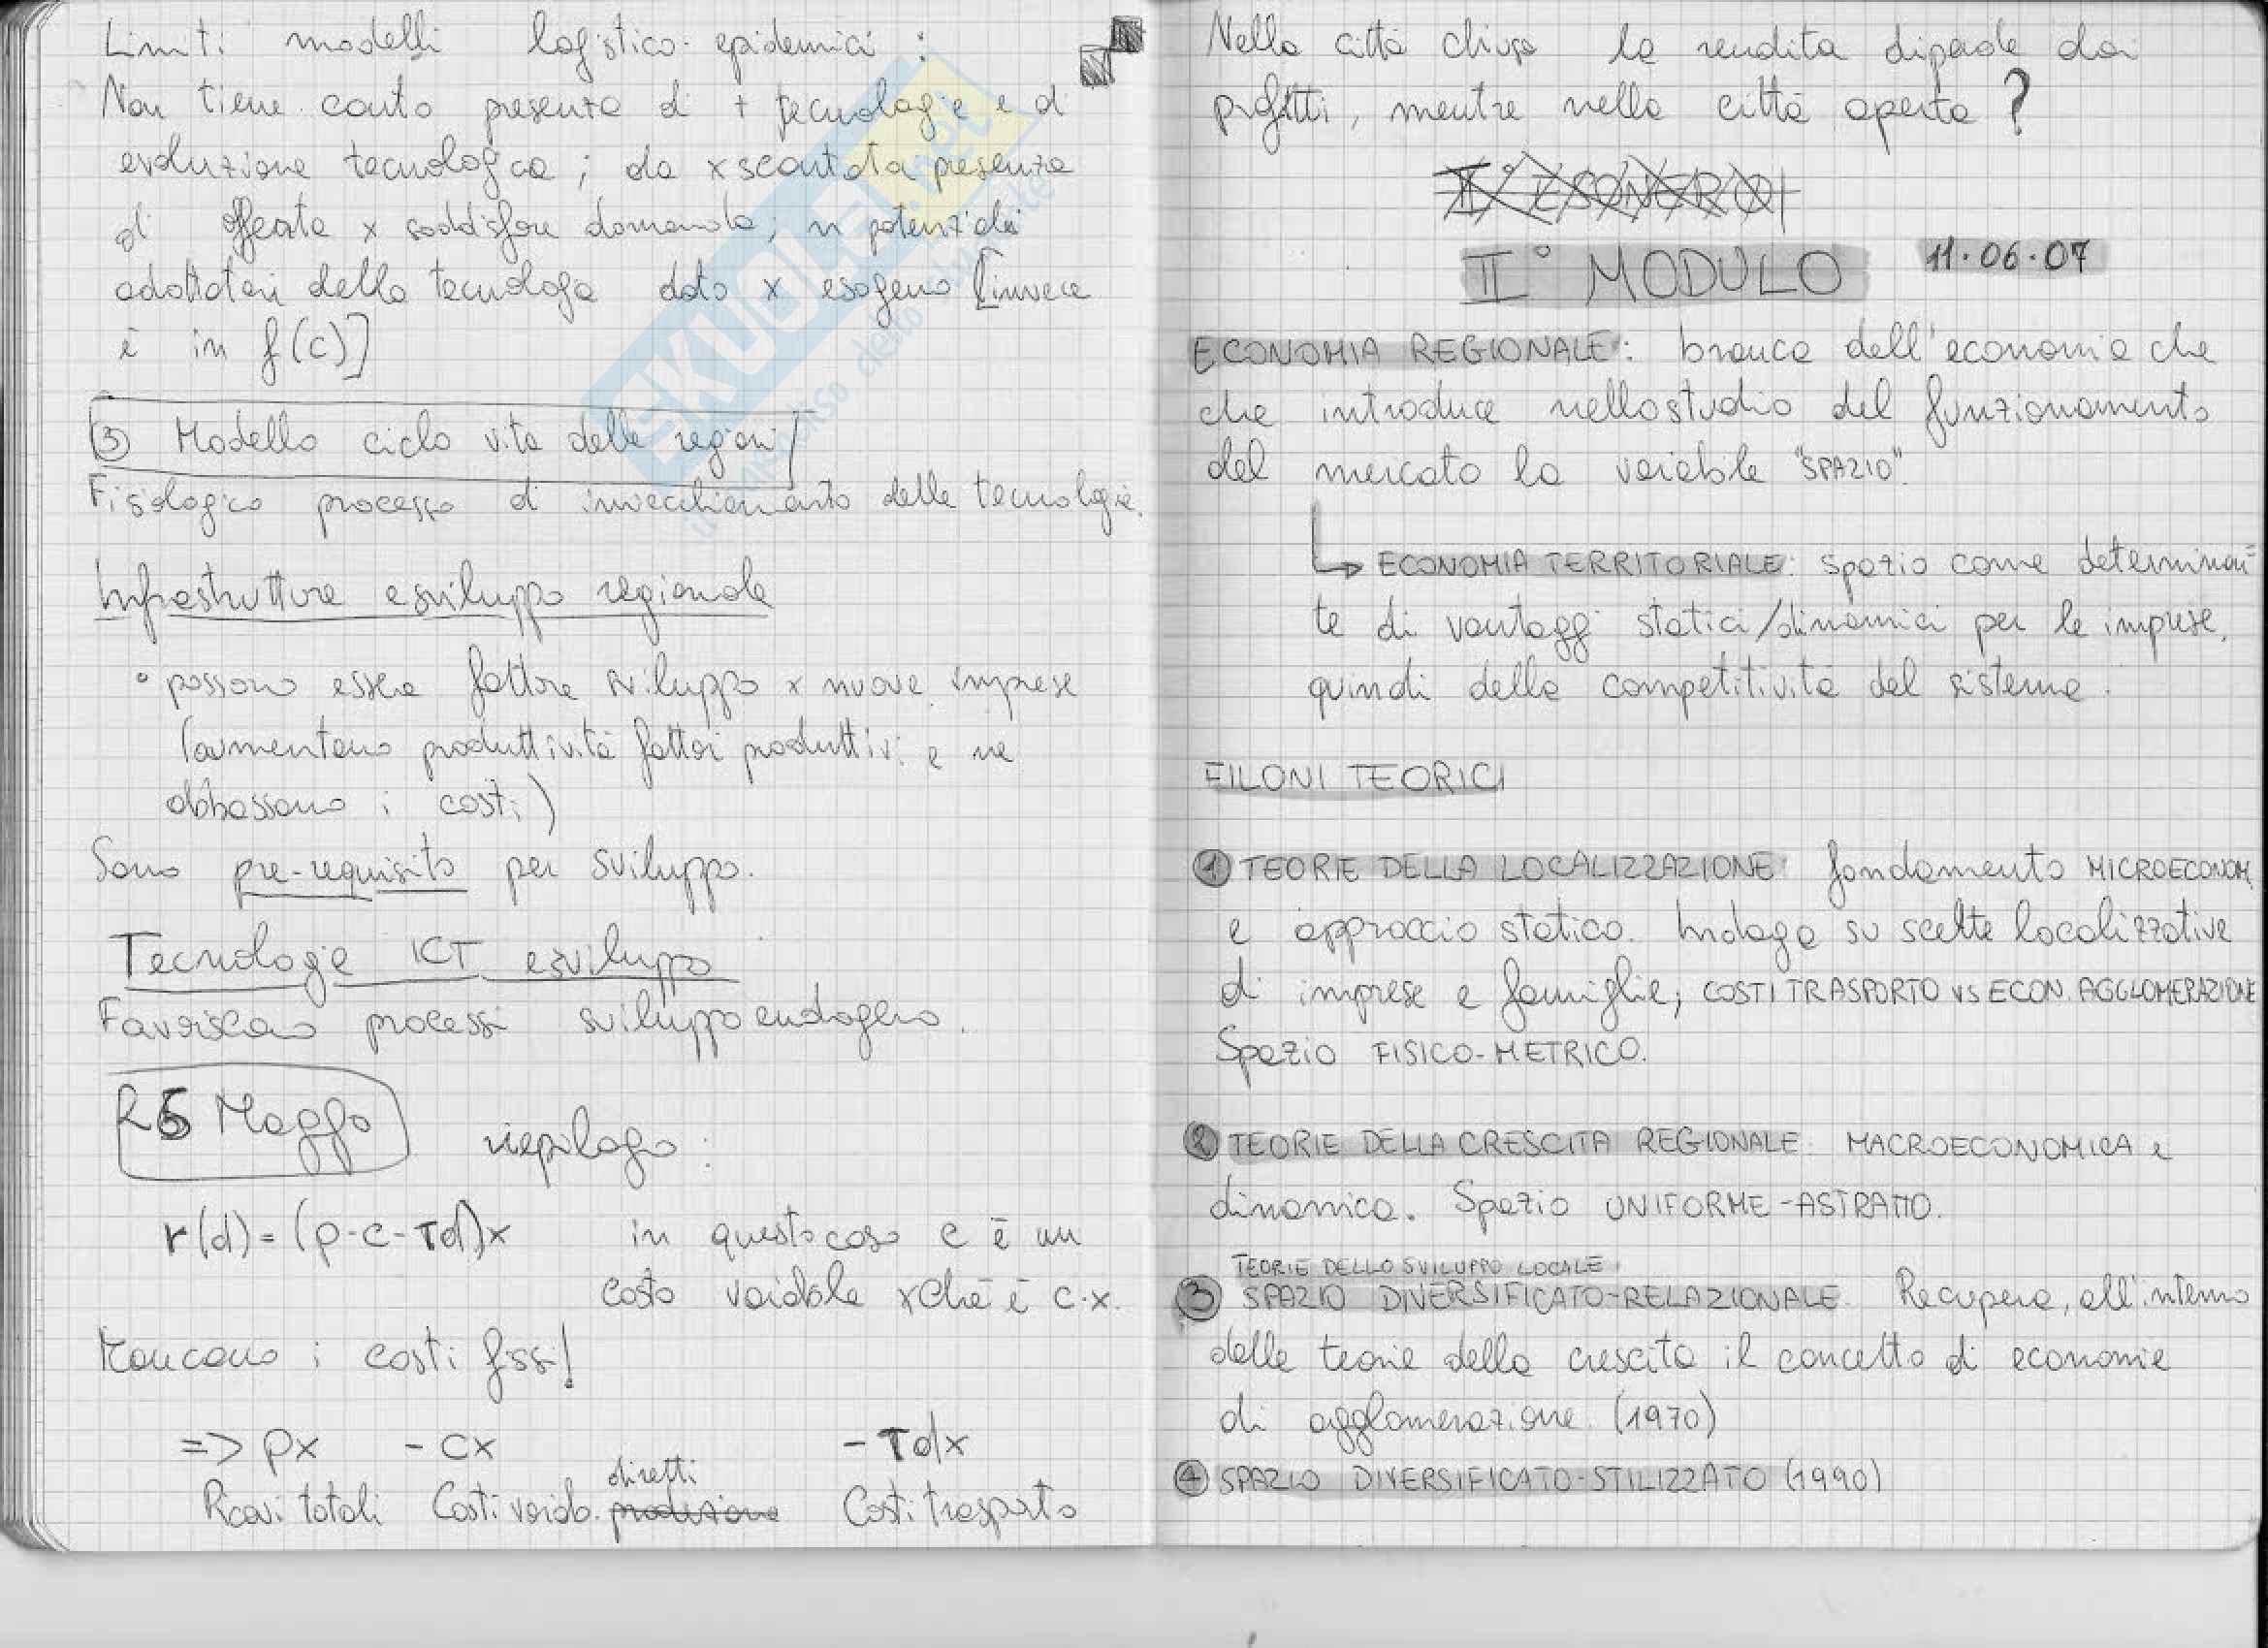 Limiti modelli logistico-epidemici :
Non tiene conto presenza di + tecnologie e di
evoluzione tecnologica ; da x scontata presenza
di offerta x soddisfare domanda; n potenziali
adottatori della tecnologia dato x esogeno [invece
è in f(c)]
③ Modello ciclo vita delle regioni
Fisiologico processo di invecchiamento delle tecnologie.
Infrastrutture e sviluppo regionale
° possono essere fattore sviluppo x nuove imprese
(aumentano produttività fattori produttivi e ne
abbassano i costi)
Sono pre-requisito per sviluppo.
Tecnologie ICT e sviluppo
Favoriscono processi sviluppo endogeno.
25 Maggio riepilogo :
r(d) = (p-c-τd)x in questo caso c è un
costo variabile xchè è c·x.
Mancano i costi fissi!
=> px - cx - τdx
diretti
Ricavi totali Costi variab. produzione Costi trasporto
Nella città chiusa la rendita dipende dai
profitti, mentre nella città aperta ?
II° ESONERO
II° MODULO 11.06.07
ECONOMIA REGIONALE: branca dell'economia che
che introduce nello studio del funzionamento
del mercato la variabile "SPAZIO".
↳ ECONOMIA TERRITORIALE: spazio come determinan-
te di vantaggi statici/dinamici per le imprese,
quindi della competitività del sistema.
FILONI TEORICI
① TEORIE DELLA LOCALIZZAZIONE: fondamento MICROECONOM.
e approccio statico. Indaga su scelte localizzative
di imprese e famiglie; COSTI TRASPORTO vs ECON. AGGLOMERAZIONE
Spazio FISICO-METRICO.
② TEORIE DELLA CRESCITA REGIONALE: MACROECONOMICA e
dinamica. Spazio UNIFORME-ASTRATTO.
TEORIE DELLO SVILUPPO LOCALE:
③ SPAZIO DIVERSIFICATO-RELAZIONALE. Recupera, all'interno
delle teorie della crescita il concetto di economie
di agglomerazione. (1970)
④ SPAZIO DIVERSIFICATO-STILIZZATO (1990)